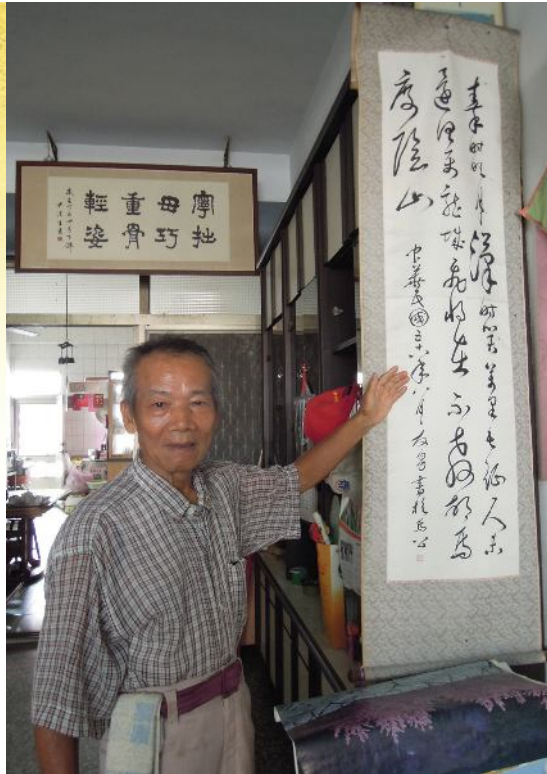 寧拙
毋巧
重骨
輕姿
秦時明月漢時關萬里長征人未
還但使龍城飛將在不教胡馬
度陰山
中華民國八年八月書於馬公